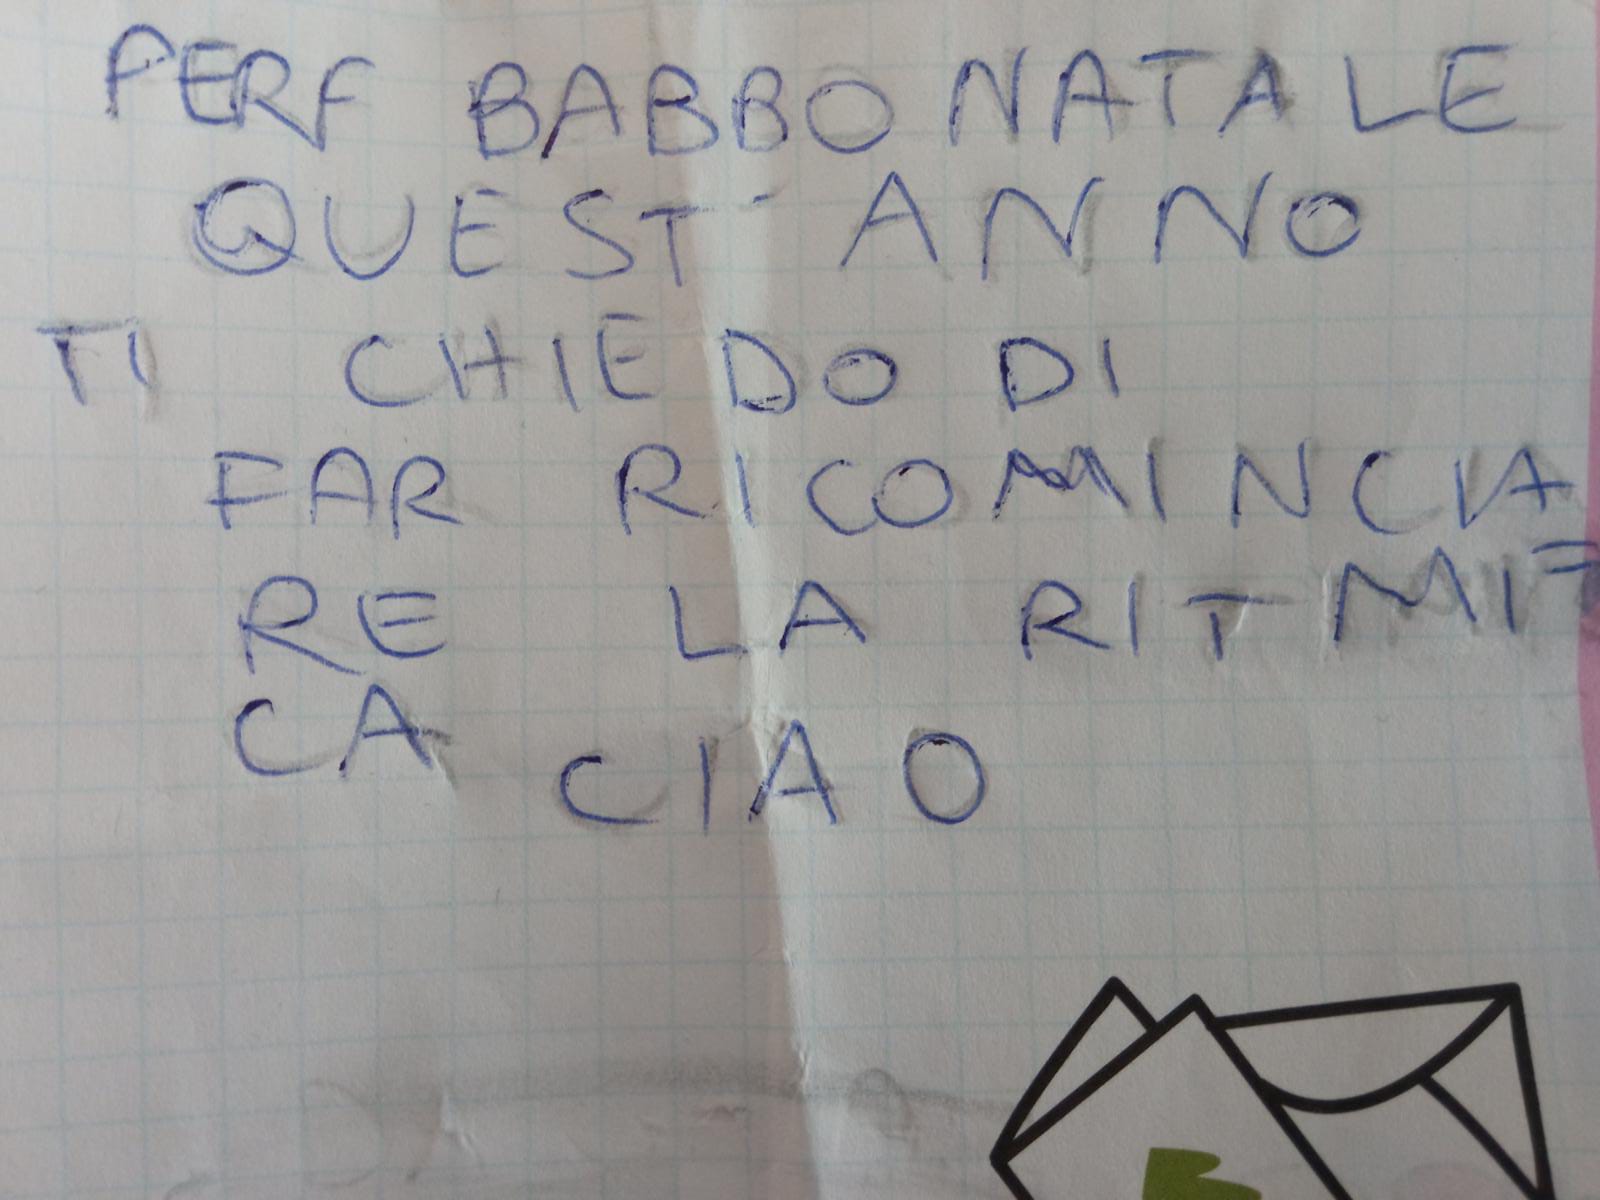 PERF BABBO NATALE
QUEST' ANNO
TI CHIEDO DI
FAR RICOMINCIA
RE LA RITMI=
CA CIAO